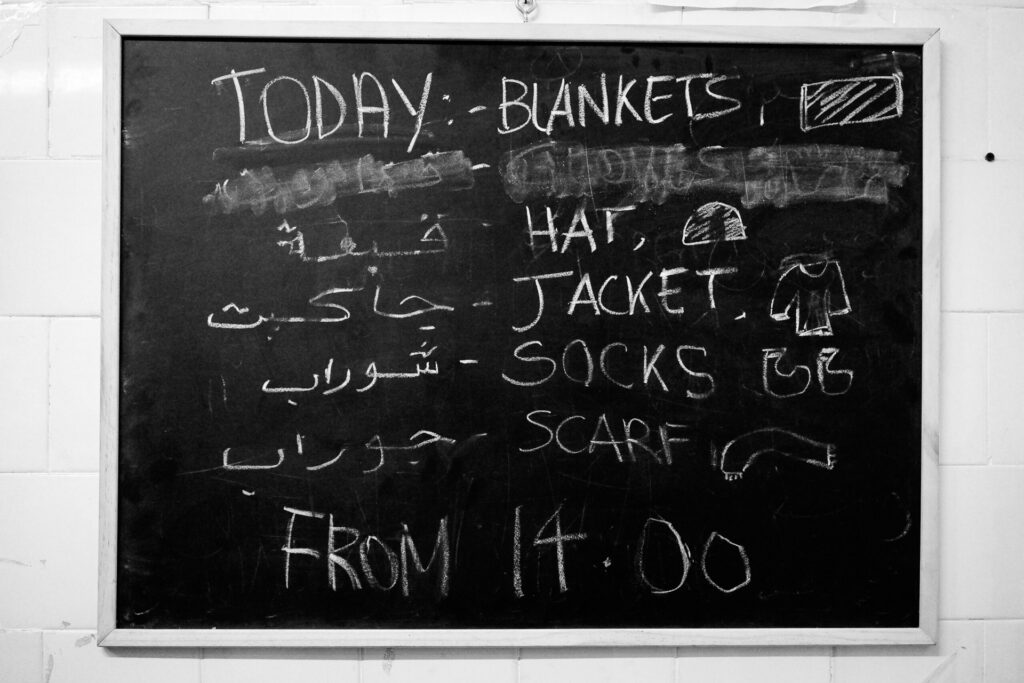 TODAY:- BLANKETS,
GLOVES
قبعة - HAT,
جاكيت - JACKET,
شوراب - SOCKS
جوراب - SCARF
FROM 14.00